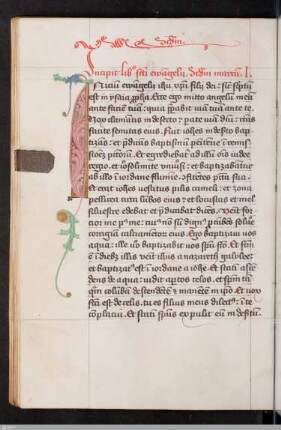 Incipit lib' scti ewangelii scdm marcu I.
Initiu ewagelii ihu xpi filii dei: sic scptu
est in ysaia ppha. Ecce ego mitto angelu meu
ante facie tua: qui ppabit uia tua ante te.
Vox clamatis in deserto: pate via dni: rctas
facite semitas eius. Fuit iohes in deserto bap
tizas: et pdicas baptismu penitecie i remis
sione pctor. Et egrediebat ad illu ois iudee
regio et iosolimite uniusi: et baptizabatur
ab illo i iordane flumie: cofitetes pcta sua.
Et erat iohes vestitus pilis cameli: et zona
pellicea circa lubos eius: et locustas et mel
siluestre edebat et pdicabat dices. Veit for
tior me p me: cui' no su dign' pcubes soluere
corrigia calciametor eius. Ego baptizaui vos
aqua: ille vo baptizabit vos spu sco. Et fcm
e i dieb3 illis veit ihus a nazareth galilee:
et baptizat' est i iordane a iohe. Et stati asce
dens de aqua: vidit aptos celos, et spm
tq columba descendete et manete in ipo. Et vox
fca est de celis: tu es filius meus dilect': i te
coplacui. Et stati spus expulit eu in desertu.